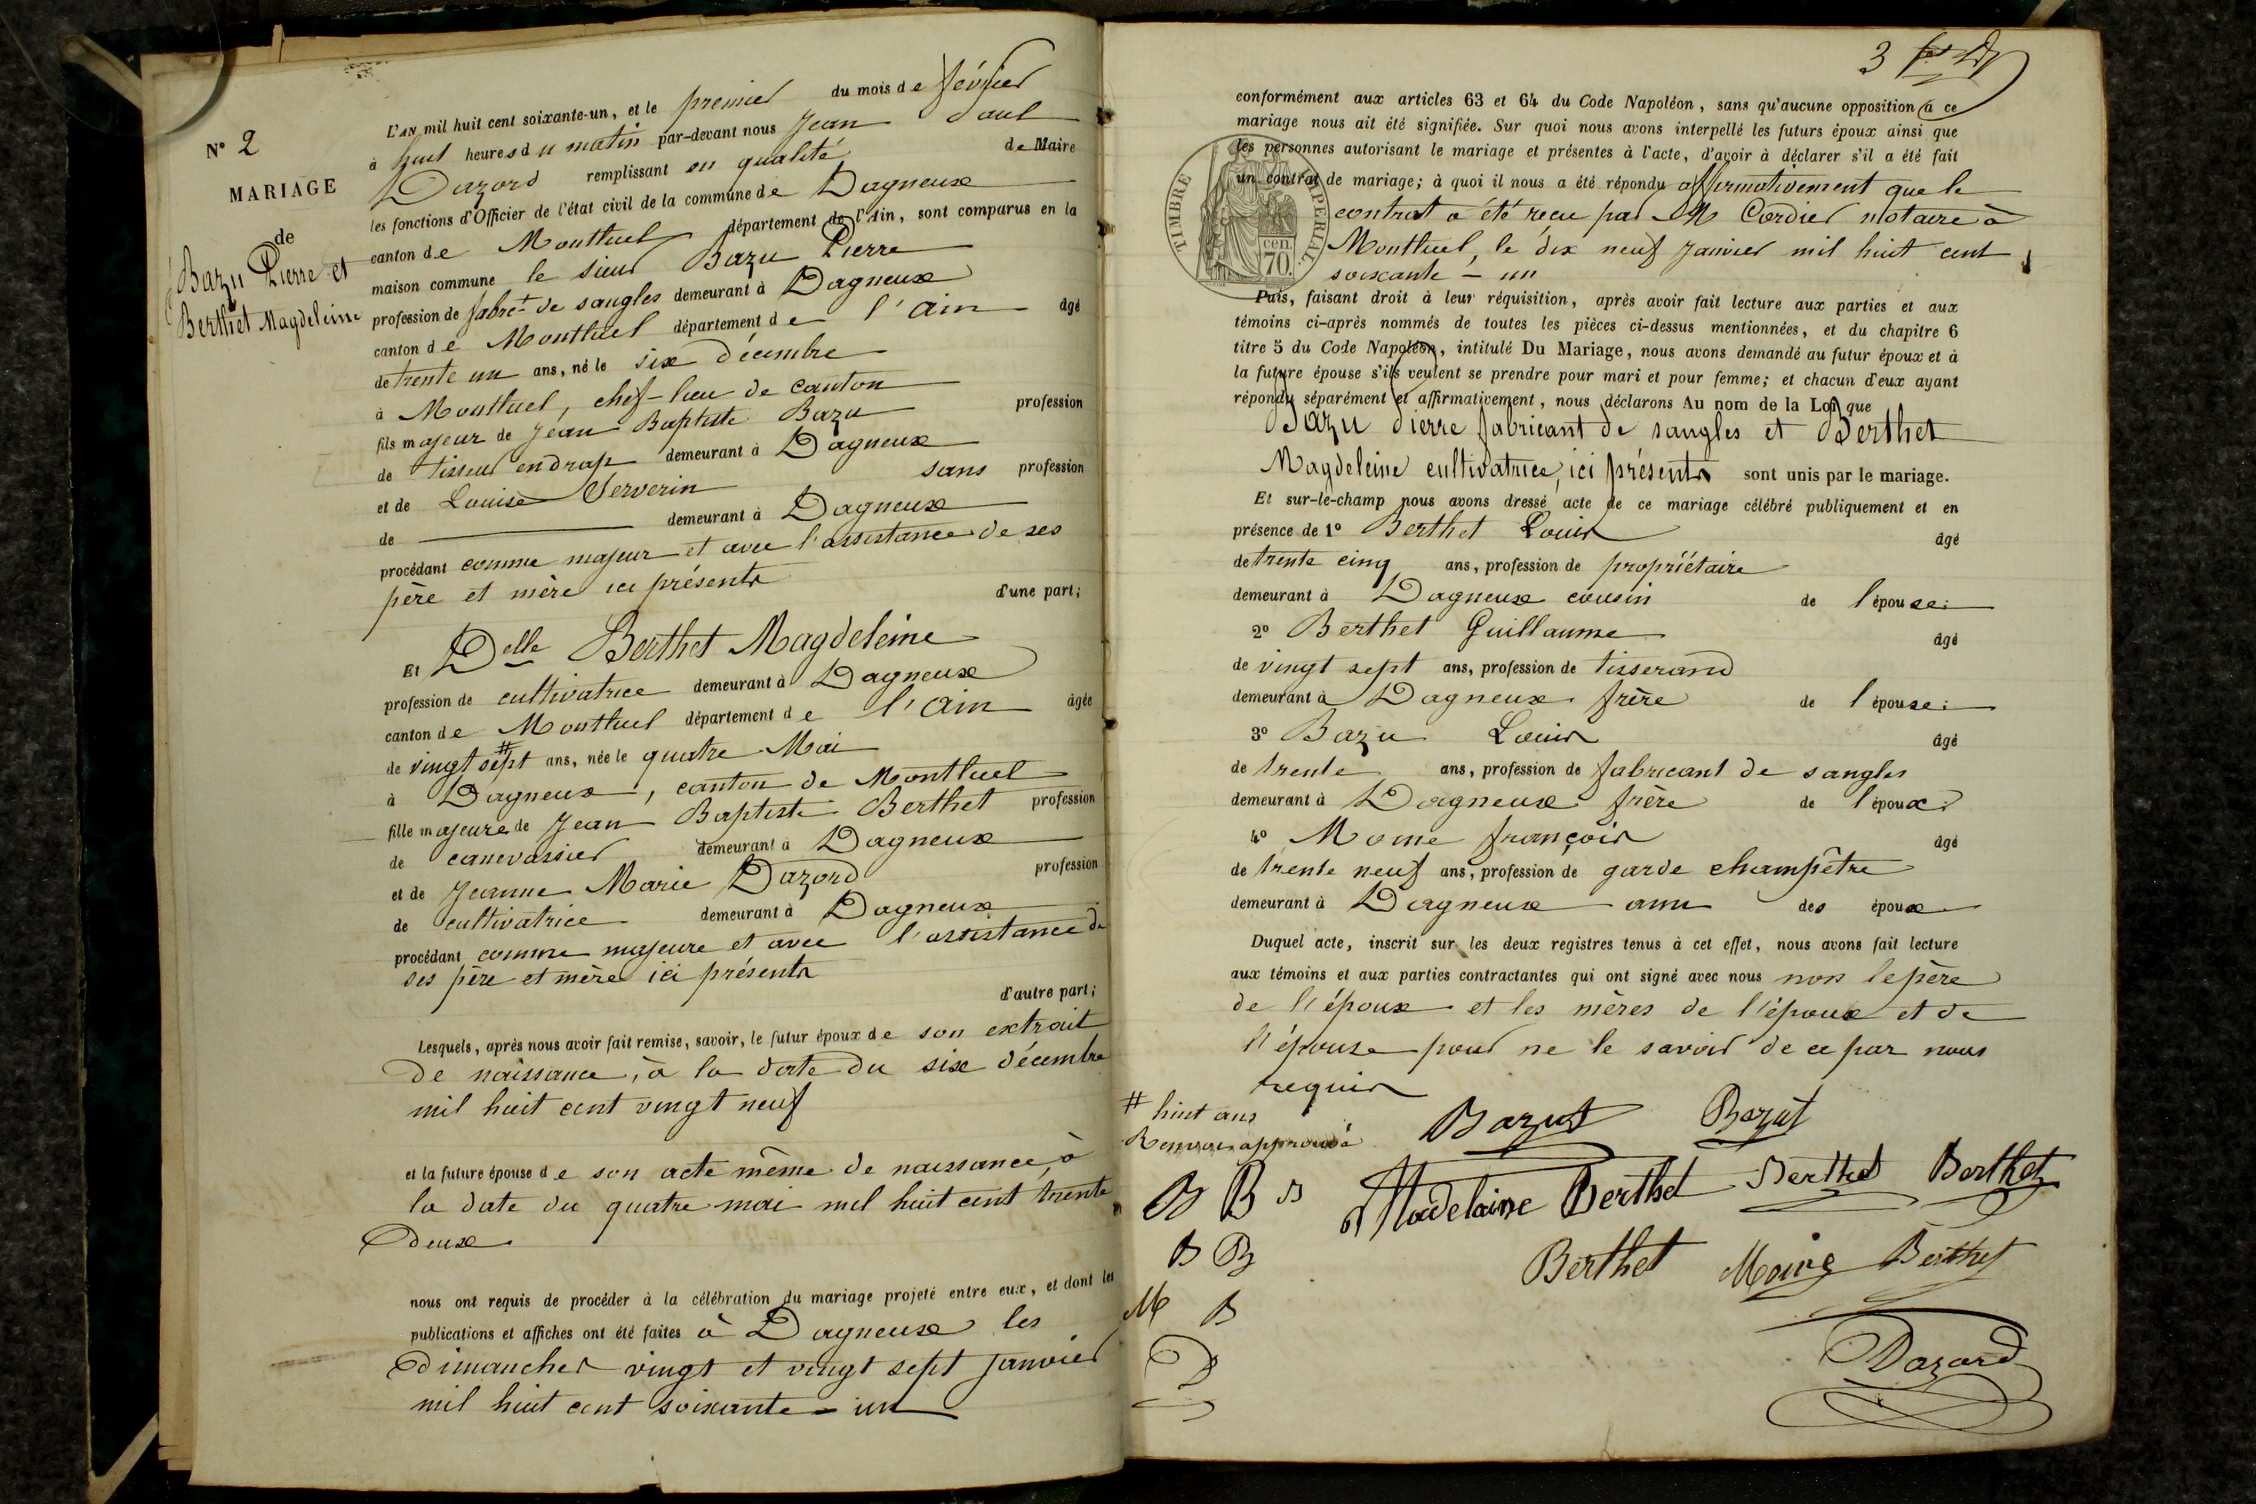 N° 2
MARIAGE
de
Bazu Pierre et
Berthet Magdeleine
L'AN mil huit cent soixante-un, et le premier du mois de février
à huit heures du matin par-devant nous Jean Paul
Dazord remplissant en qualité de Maire
les fonctions d'Officier de l'état civil de la commune de Dagneux
canton de Montluel département de l'Ain, sont comparus en la
maison commune le sieur Bazu Pierre
profession de fabrt de sangles demeurant à Dagneux
canton de Montluel département de l'Ain âgé
de trente un ans, né le six décembre
à Montluel, chef-lieu de canton
fils majeur de Jean Baptiste Bazu profession
de tisseur en drap demeurant à Dagneux
et de Louise Serverin sans profession
de demeurant à Dagneux
procédant comme majeur et avec l'assistance de ses
père et mère ici présents d'une part;
Et Delle Berthet Magdeleine
profession de cultivatrice demeurant à Dagneux
canton de Montluel département de l'Ain âgée
de vingt sept # ans, née le quatre Mai
à Dagneux, canton de Montluel
fille majeure de Jean Baptiste Berthet profession
de canevassier demeurant à Dagneux
et de Jeanne Marie Dazord profession
de cultivatrice demeurant à Dagneux
procédant comme majeure et avec l'assistance de
ses père et mère ici présents
d'autre part;
Lesquels, après nous avoir fait remise, savoir, le futur époux de son extrait
de naissance, à la date du six décembre
mil huit cent vingt neuf
et la future épouse de son acte même de naissance, à
la date du quatre mai mil huit cent trente
deux
nous ont requis de procéder à la célébration du mariage projeté entre eux, et dont les
publications et affiches ont été faites à Dagneux les
dimanches vingt et vingt sept janvier
mil huit cent soixante-un
3
conformément aux articles 63 et 64 du Code Napoléon, sans qu'aucune opposition à ce
mariage nous ait été signifiée. Sur quoi nous avons interpellé les futurs époux ainsi que
les personnes autorisant le mariage et présentes à l'acte, d'avoir à déclarer s'il a été fait
un contrat de mariage; à quoi il nous a été répondu affirmativement que le
contrat a été reçu par M Cordier notaire à
Montluel, le dix neuf janvier mil huit cent
soixante-un
TIMBRE IMPERIAL
cen.
70.
Puis, faisant droit à leur réquisition, après avoir fait lecture aux parties et aux
témoins ci-après nommés de toutes les pièces ci-dessus mentionnées, et du chapitre 6
titre 5 du Code Napoléon, intitulé Du Mariage, nous avons demandé au futur époux et à
la future épouse s'ils veulent se prendre pour mari et pour femme; et chacun d'eux ayant
répondu séparément et affirmativement, nous déclarons Au nom de la Loi que
Bazu Pierre fabricant de sangles et Berthet
Magdeleine cultivatrice, ici présents sont unis par le mariage.
Et sur-le-champ nous avons dressé acte de ce mariage célébré publiquement et en
présence de 1° Berthet Louis âgé
de trente cinq ans, profession de propriétaire
demeurant à Dagneux cousin de l'épouse;
2° Berthet Guillaume âgé
de vingt sept ans, profession de tisserand
demeurant à Dagneux frère de l'épouse;
3° Bazu Louis âgé
de trente ans, profession de fabricant de sangles
demeurant à Dagneux frère de l'époux;
4° Moine françois âgé
de trente neuf ans, profession de garde champêtre
demeurant à Dagneux ami des époux
Duquel acte, inscrit sur les deux registres tenus à cet effet, nous avons fait lecture
aux témoins et aux parties contractantes qui ont signé avec nous non le père
de l'époux et les mères de l'époux et de
l'épouse pour ne le savoir de ce par nous
requis
# huit ans
Renvoi approuvé
Bazut Bazut
B B B Madelaine Berthet Berthet Berthet
B B Berthet Moine Berthet
M B
D Dazord